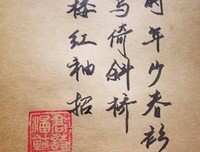 时年少春衫
马倚斜桥
楼红袖招